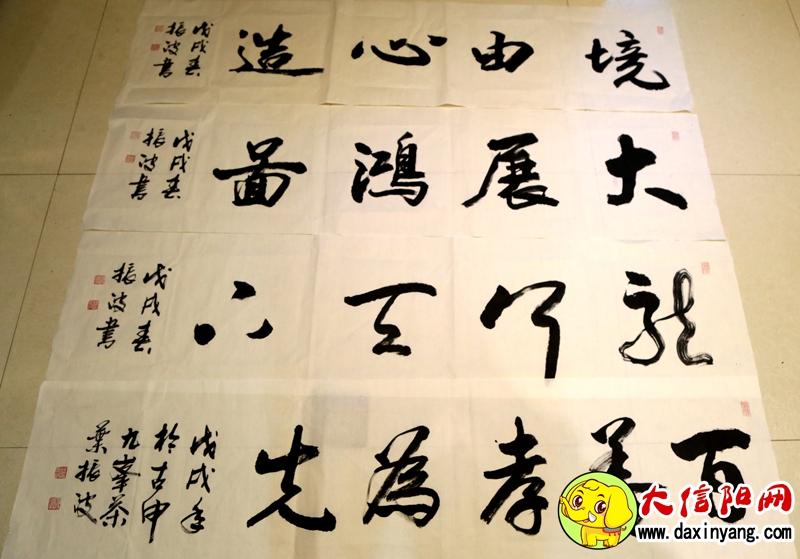 境由心造
戊戌春
振波書
大展鴻圖
戊戌春
振波書
龍行天下
戊戌春
振波書
百善孝為先
戊戌年
於古申
九峯茶
葉振波
大信阳网
www.daxinyang.com